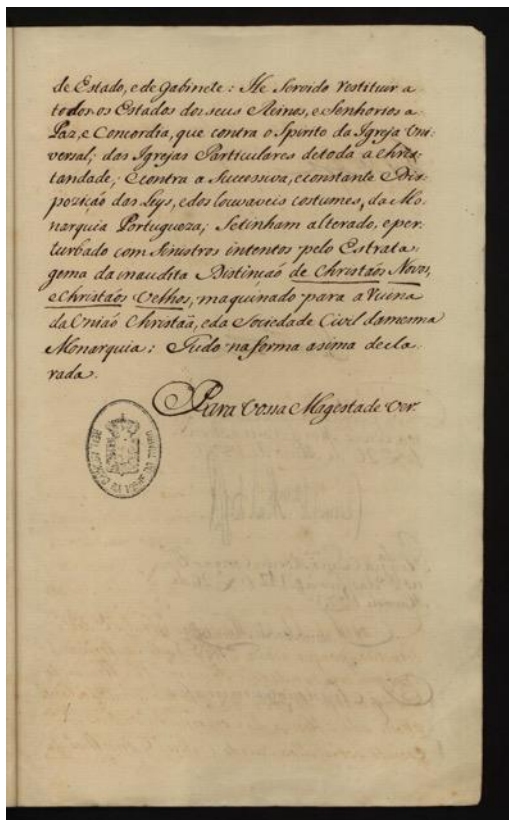 de Estado, e de Gabinete: He Servido restituir a
todos os Estados dos seus Reinos, e Senhorios a
Paz, e Concordia, que contra o Spirito da Igreja Uni-
versal; das Igrejas Particulares de toda a Chris-
tandade; E contra a Successiva, e constante Dis-
pozição das Leys, e dos louvaveis costumes, da Mo-
narquia Portugueza; Se tinham alterado, e per-
turbado com Sinistros intentos pelo Estrata-
gema da inaudita Distinção de Christãos Novos,
e Christãos Velhos, maquinado para a Ruina
da União Christaã, e da Sociedade Civil da mesma
Monarquia: Tudo na forma asima decla-
rada.
Para Vossa Magestade Ver.